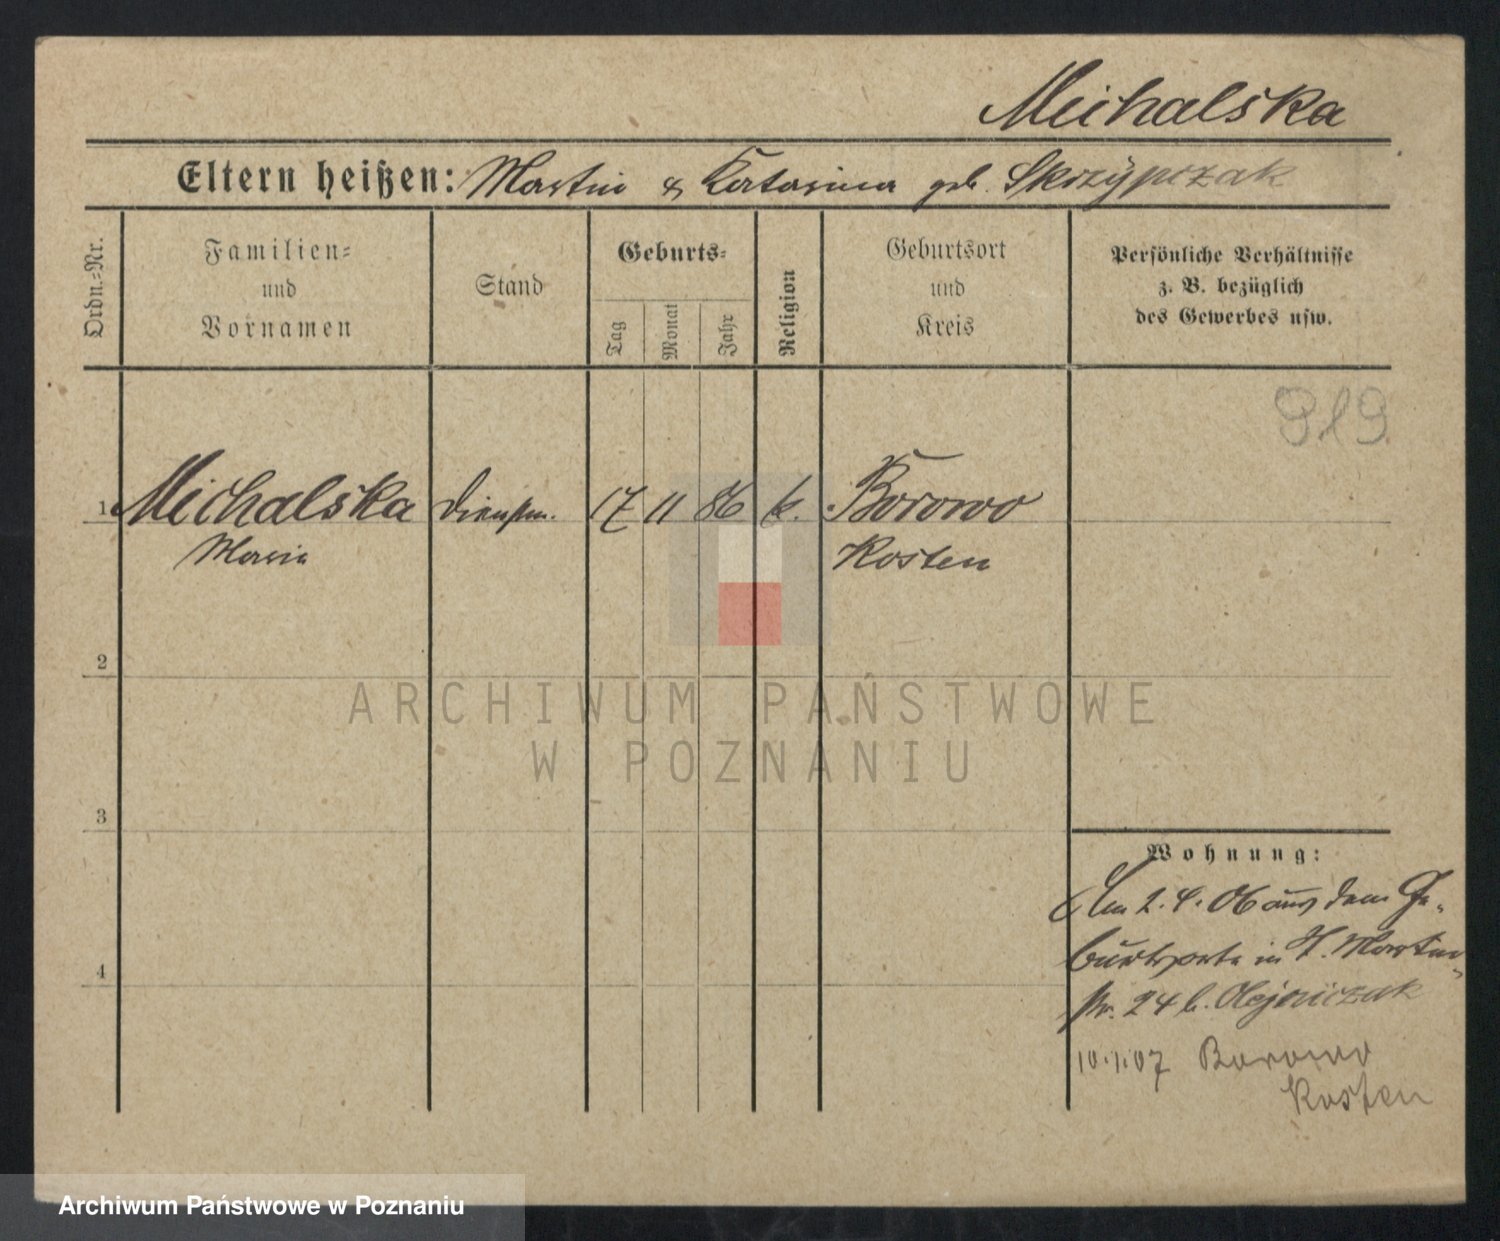 Michalska
Eltern heißen: Martin & Katarina geb. Skrzypczak
Ordn.-Nr.
Familien-
und
Vornamen
Stand
Geburts-
Tag
Monat
Jahr
Religion
Geburtsort
und
Kreis
Persönliche Verhältnisse
z. B. bezüglich
des Gewerbes usw.
919
1 Michalska Dienstm. 17 11 86 k. Borowo
Maria Kosten
2
ARCHIWUM PAŃSTWOWE
W POZNANIU
3
Wohnung:
Am 2. 4. 06 aus dem Ge-
burtsorte in St. Martin-
str. 24 b. Olejniczak
4
10.1.07 Borowo
Kosten
Archiwum Państwowe w Poznaniu